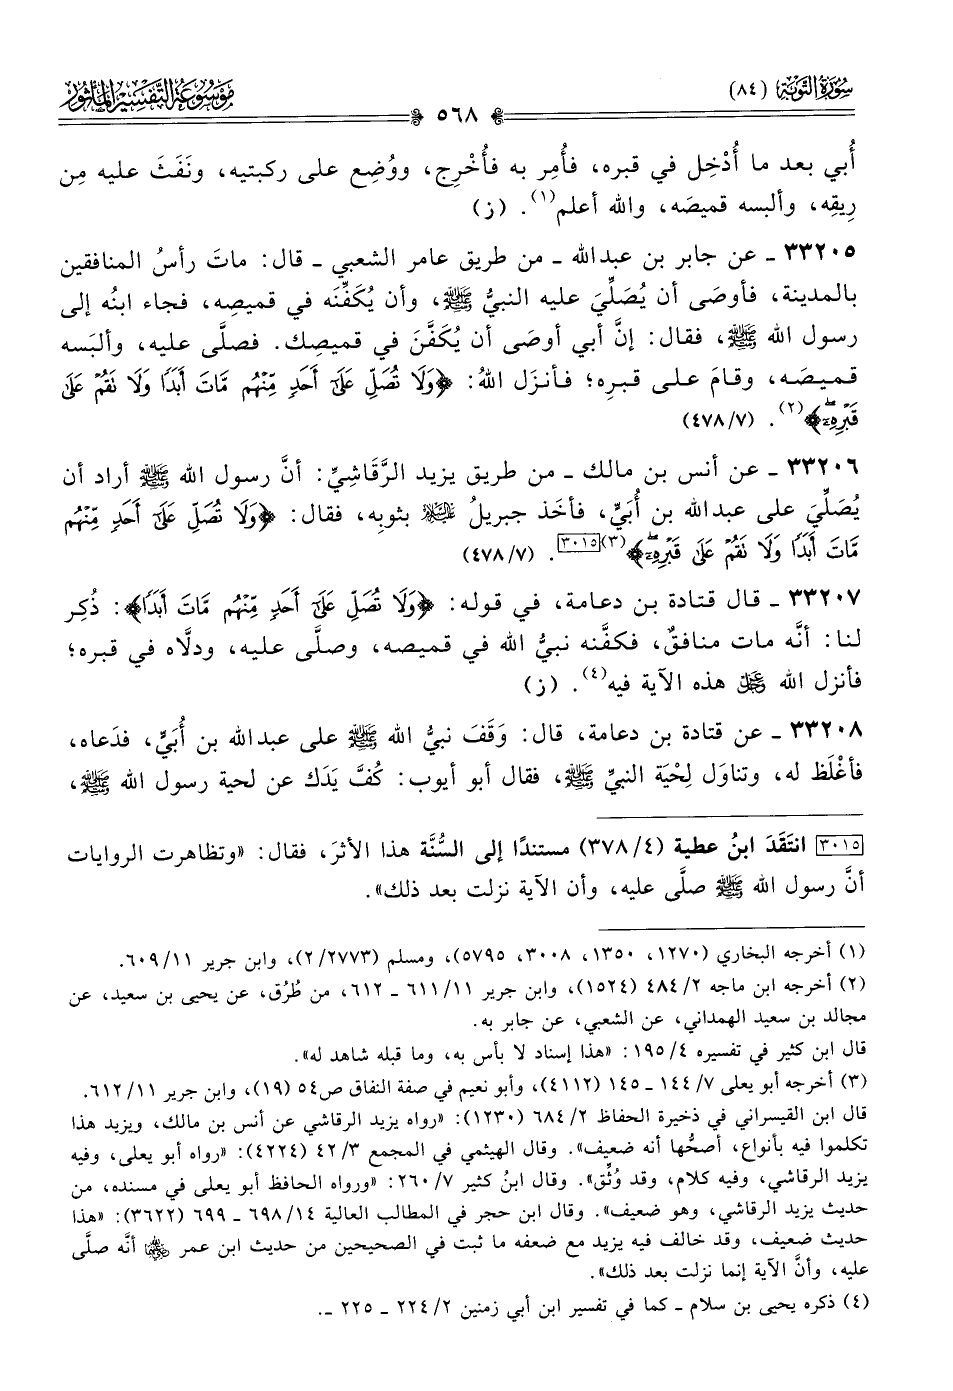 سُورَةُ التَّوْبَةِ (٨٤)
٥٦٨
مَوْسُوعَةُ التَّفْسِيرِ المَأْثُورِ
أُبي بعد ما أُدْخِل في قبره، فأُمِر به فأُخْرِج، ووُضِع على ركبتيه، ونَفَثَ عليه مِن
رِيقِه، وألبسه قميصَه، والله أعلم(١). (ز)
٣٣٢٠٥ ـ عن جابر بن عبدالله ـ من طريق عامر الشعبي ـ قال: ماتَ رأسُ المنافقين
بالمدينة، فأوصَى أن يُصَلِّيَ عليه النبيُّ ﷺ، وأن يُكَفِّنَه في قميصِه، فجاء ابنُه إلى
رسول الله ﷺ، فقال: إنَّ أبي أوصَى أن يُكَفَّنَ في قميصِك. فصلَّى عليه، وألبَسه
قميصَه، وقامَ على قبرِه؛ فأنزَل اللهُ: ﴿وَلَا تُصَلِّ عَلَىٰٓ أَحَدٍ مِّنْهُم مَّاتَ أَبَدًا وَلَا نَقُمْ عَلَىٰ
قَبْرِهِۦٓ﴾(٢). (٤٧٨/٧)
٣٣٢٠٦ ـ عن أنس بن مالك ـ من طريق يزيد الرَّقَاشِيِّ: أنَّ رسول الله ﷺ أراد أن
يُصَلِّيَ على عبدالله بن أُبَيٍّ، فأخَذ جبريلُ عليه السلام بثوبِه، فقال: ﴿وَلَا تُصَلِّ عَلَىٰٓ أَحَدٍ مِّنْهُم
مَّاتَ أَبَدًا وَلَا نَقُمْ عَلَىٰ قَبْرِهِۦٓ﴾(٣)[٣٠١٥]. (٤٧٨/٧)
٣٣٢٠٧ ـ قال قتادة بن دعامة، في قوله: ﴿وَلَا تُصَلِّ عَلَىٰٓ أَحَدٍ مِّنْهُم مَّاتَ أَبَدًا﴾: ذُكِر
لنا: أنَّه مات منافقٌ، فكفَّنه نبيُّ الله في قميصه، وصلَّى عليه، ودلَّاه في قبره؛
فأنزل الله عز وجل هذه الآية فيه(٤). (ز)
٣٣٢٠٨ ـ عن قتادة بن دعامة، قال: وَقَفَ نبيُّ الله ﷺ على عبدالله بن أُبَيٍّ، فدَعاه،
فأغْلَظ له، وتناوَل لِحْيَة النبيِّ ﷺ، فقال أبو أيوب: كُفَّ يَدَك عن لحية رسول الله ﷺ،
[٣٠١٥] انتَقَدَ ابنُ عطية (٣٧٨/٤) مستندًا إلى السُّنَّة هذا الأثرَ، فقال: «وتظاهرت الروايات
أنَّ رسول الله ﷺ صلَّى عليه، وأن الآية نزلت بعد ذلك».
(١) أخرجه البخاري (١٢٧٠، ١٣٥٠، ٣٠٠٨، ٥٧٩٥)، ومسلم (٢/٢٧٧٣)، وابن جرير ٦٠٩/١١.
(٢) أخرجه ابن ماجه ٤٨٤/٢ (١٥٢٤)، وابن جرير ٦١١/١١ ـ ٦١٢، من طُرُق، عن يحيى بن سعيد، عن
مجالد بن سعيد الهمداني، عن الشعبي، عن جابر به.
قال ابن كثير في تفسيره ١٩٥/٤: «هذا إسناد لا بأس به، وما قبله شاهد له».
(٣) أخرجه أبو يعلى ١٤٤/٧ ـ ١٤٥ (٤١١٢)، وأبو نعيم في صفة النفاق ص٥٤ (١٩)، وابن جرير ٦١٢/١١.
قال ابن القيسراني في ذخيرة الحفاظ ٦٨٤/٢ (١٢٣٠): «رواه يزيد الرقاشي عن أنس بن مالك، ويزيد هذا
تكلموا فيه بأنواع، أصحُّها أنه ضعيف». وقال الهيثمي في المجمع ٤٢/٣ (٤٢٢٤): «رواه أبو يعلى، وفيه
يزيد الرقاشي، وفيه كلام، وقد وُثِّق». وقال ابنُ كثير ٢٦٠/٧: «ورواه الحافظ أبو يعلى في مسنده، من
حديث يزيد الرقاشي، وهو ضعيف». وقال ابن حجر في المطالب العالية ٦٩٨/١٤ ـ ٦٩٩ (٣٦٢٢): «هذا
حديث ضعيف، وقد خالف فيه يزيد مع ضعفه ما ثبت في الصحيحين من حديث ابن عمر رضي الله عنهما أنَّه صلَّى
عليه، وأنَّ الآية إنما نزلت بعد ذلك».
(٤) ذكره يحيى بن سلام ـ كما في تفسير ابن أبي زمنين ٢٢٤/٢ ـ ٢٢٥ ـ.